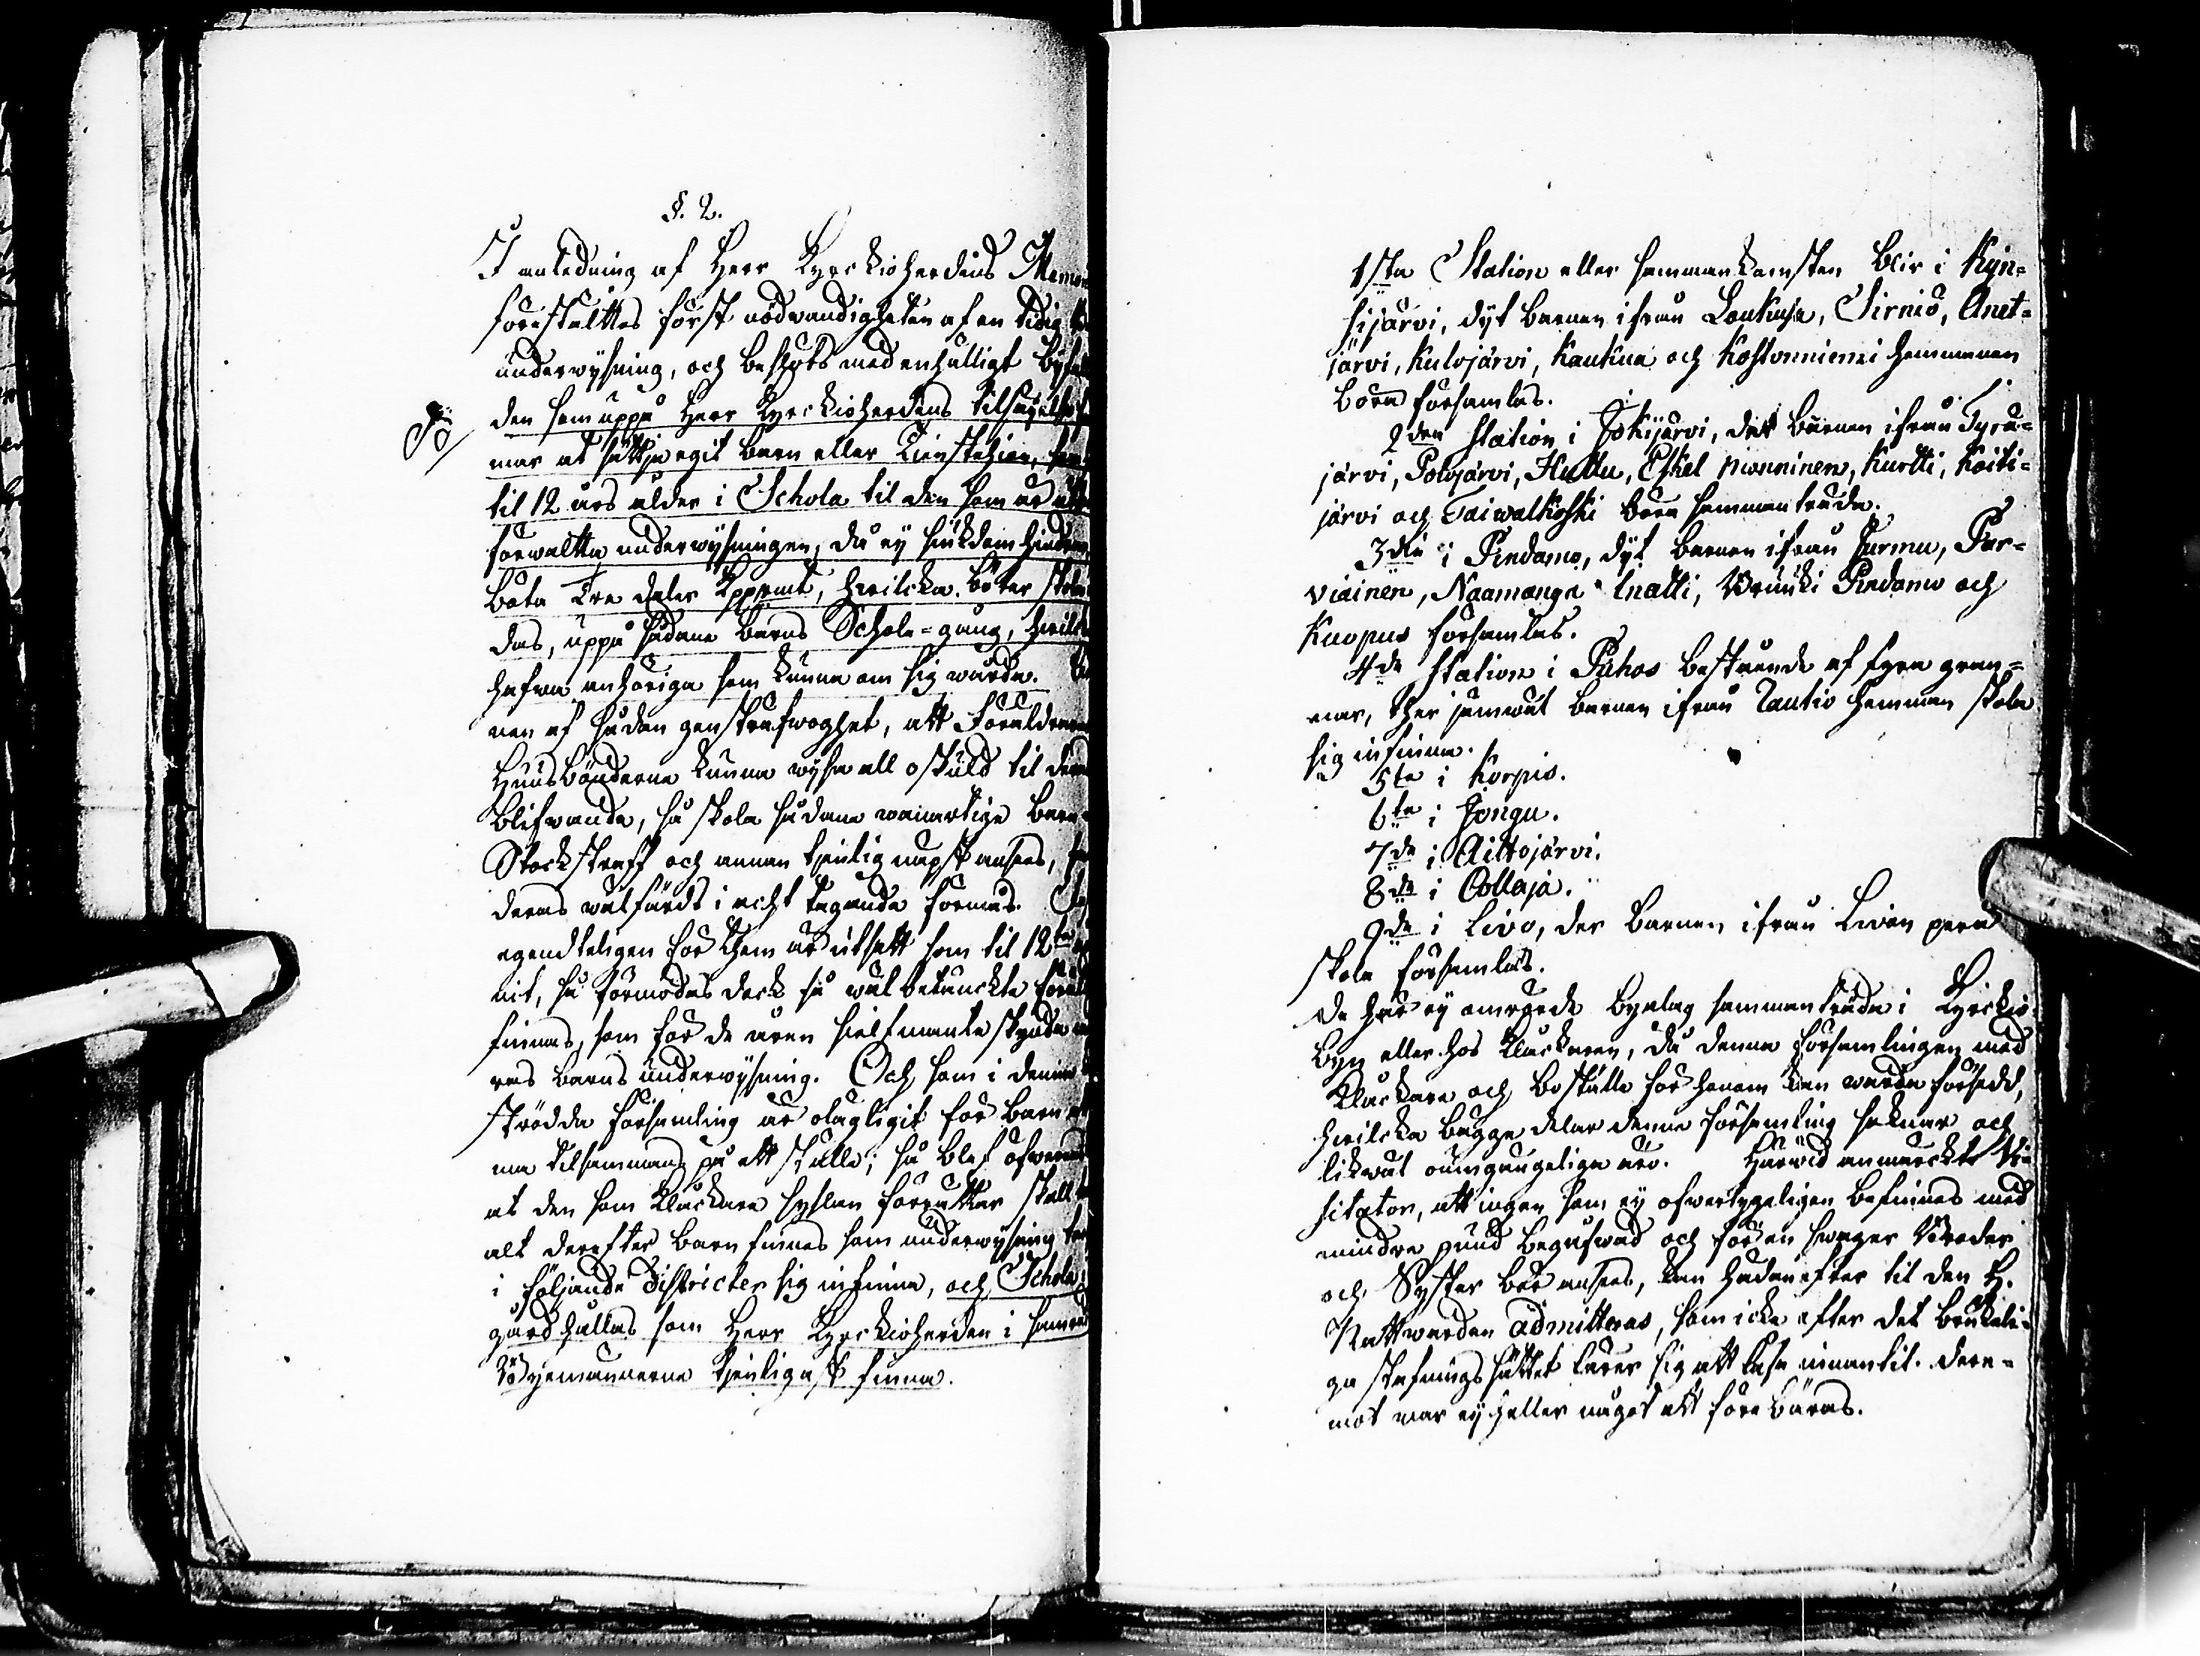 §. 2.
I anledning af Herr Kyrckioherdens Memo
förestältes först nödwändigheten af en tidig
underwysning, och beslöts med enhälligt byfal
den som uppå Herr Kyrckioherdens tilsäyelse
mar at sättja egit barn eller tienstehion,
til 12 års ålder i Schola til den som är
förwalta underwysningen, då ey siukdom hindrar
böta Tre daler Kopp:mt, hwilcka böter skola
das, uppå sådane barns Schole-gång, hwilka
hafwa anhöriga som kunna om sig wårda.
nen af sådan genstrefwoghet, att Föräldrarne
Huusbönderne kunna wysa all oskuld til deras
blifwande, så skola sådane wanartige barn
Stockstraff och annan tjenlig näpst anses,
deras wälfärds i acht tagande förmås.
egendteligen för them är utsatt som til 12te
nit, så förmodas dock så wälbetänckte föräl
finnas, som för de åren sielfmante skynda
ras barns underwysning. Och som i denna
strödda församling är olägligit för barn
na tilsammans på ett ställe; så blef öfwerens
at den som Klockare sysslan förrättar skall
alt derefter barn finnes som underwysning
i följande Districter sig infinna, och Schola
gård hållas som Herr Kyrckioherden i samråd
Byemännerne tjenligast finna.
1sta Station eller sammankomsten blir i Kyn=
sijärvi, dyt barnen ifrån Loukusa, Sirniö, Anet=
järvi, Kulojärvi, Kaukua och Kostonniemi hemmanen
böra församlas.
2dra Station i Jokijärvi, dit barnen ifrån Tyrä=
järvi, Polojärvi, Huttu, Eskel Mannninen, Kurtti, Koiti=
järvi och Taiwalkoski böra sammanträda.
3die i Pindamo, dyt barnen ifrån Jurmu, Par=
viainen, Naamanga Inatti, Pindamo och
Kuopus församlas.
4de Station i Puhos bestående af fyra gran=
nar, ther jemwäl barnen ifrån Rautio hemman skola
sig infinna.
5te i Korpis.
6te i Jongu.
7de i Aittojärvi.
8de i Collaja.
9de i Livo, der barnen ifrån Livon perä
skola församlas.
De här ey omrörde byalag sammanträda i Kyrckio
byn eller hos Klockaren, då denna församlingen med
Klockare och boställe för honom kan warda försedd,
hwilcka bägge delar denna församling saknar och
likwäl oumgängelige äro. Härwid anmärckte Vi=
sitator, att ingen som ey ofwertygeligen befinnes med
mindre pund begåfwad och för en swager Broder
och Syster bör anses, kan hädanefter til den H.
Nattwarden admitteras, som icke efter det brukeli=
ga stafningssättet lärer sig att läsa innantil. Dere=
mot war ey heller något att förebäras.